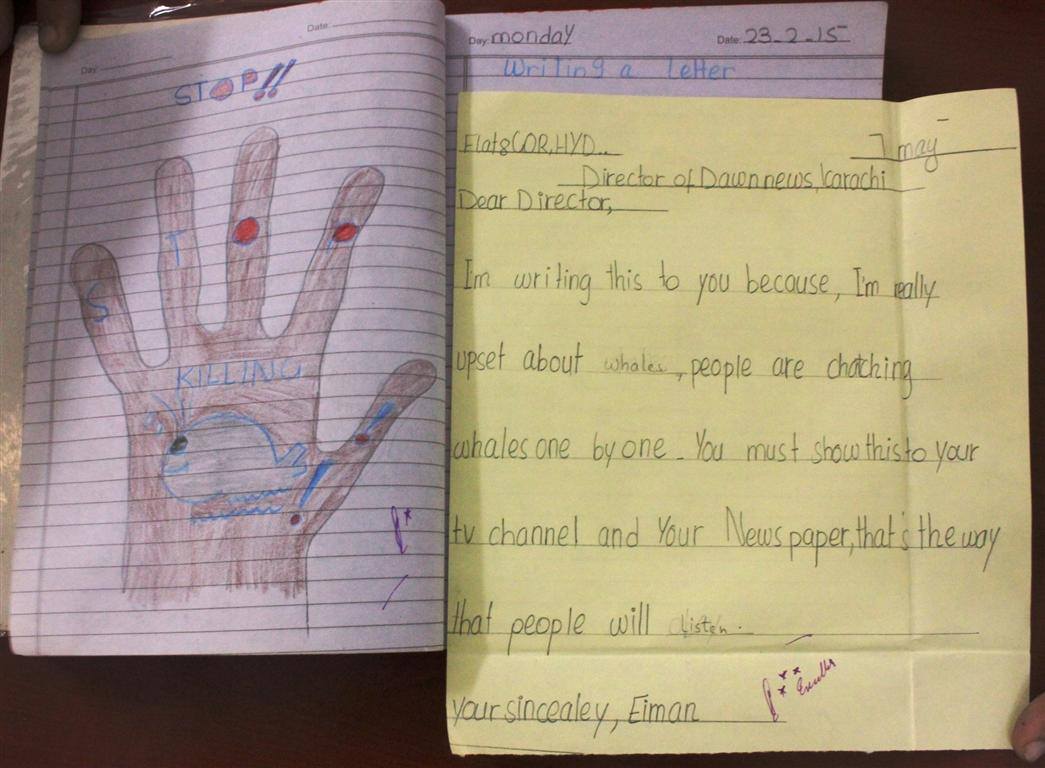 Date:
Day:
STOP!!
S
T
KILLING
Day: monday
Date: 23-2-15
Writing a letter
7 may
Director of Dawn news, Karachi
Dear Director,
I'm writing this to you because, I'm really
upset about whales, people are chatching
whales one by one. You must show this to your
tv channel and Your News paper, that's the way
that people will listen.
your sincealey, Eiman